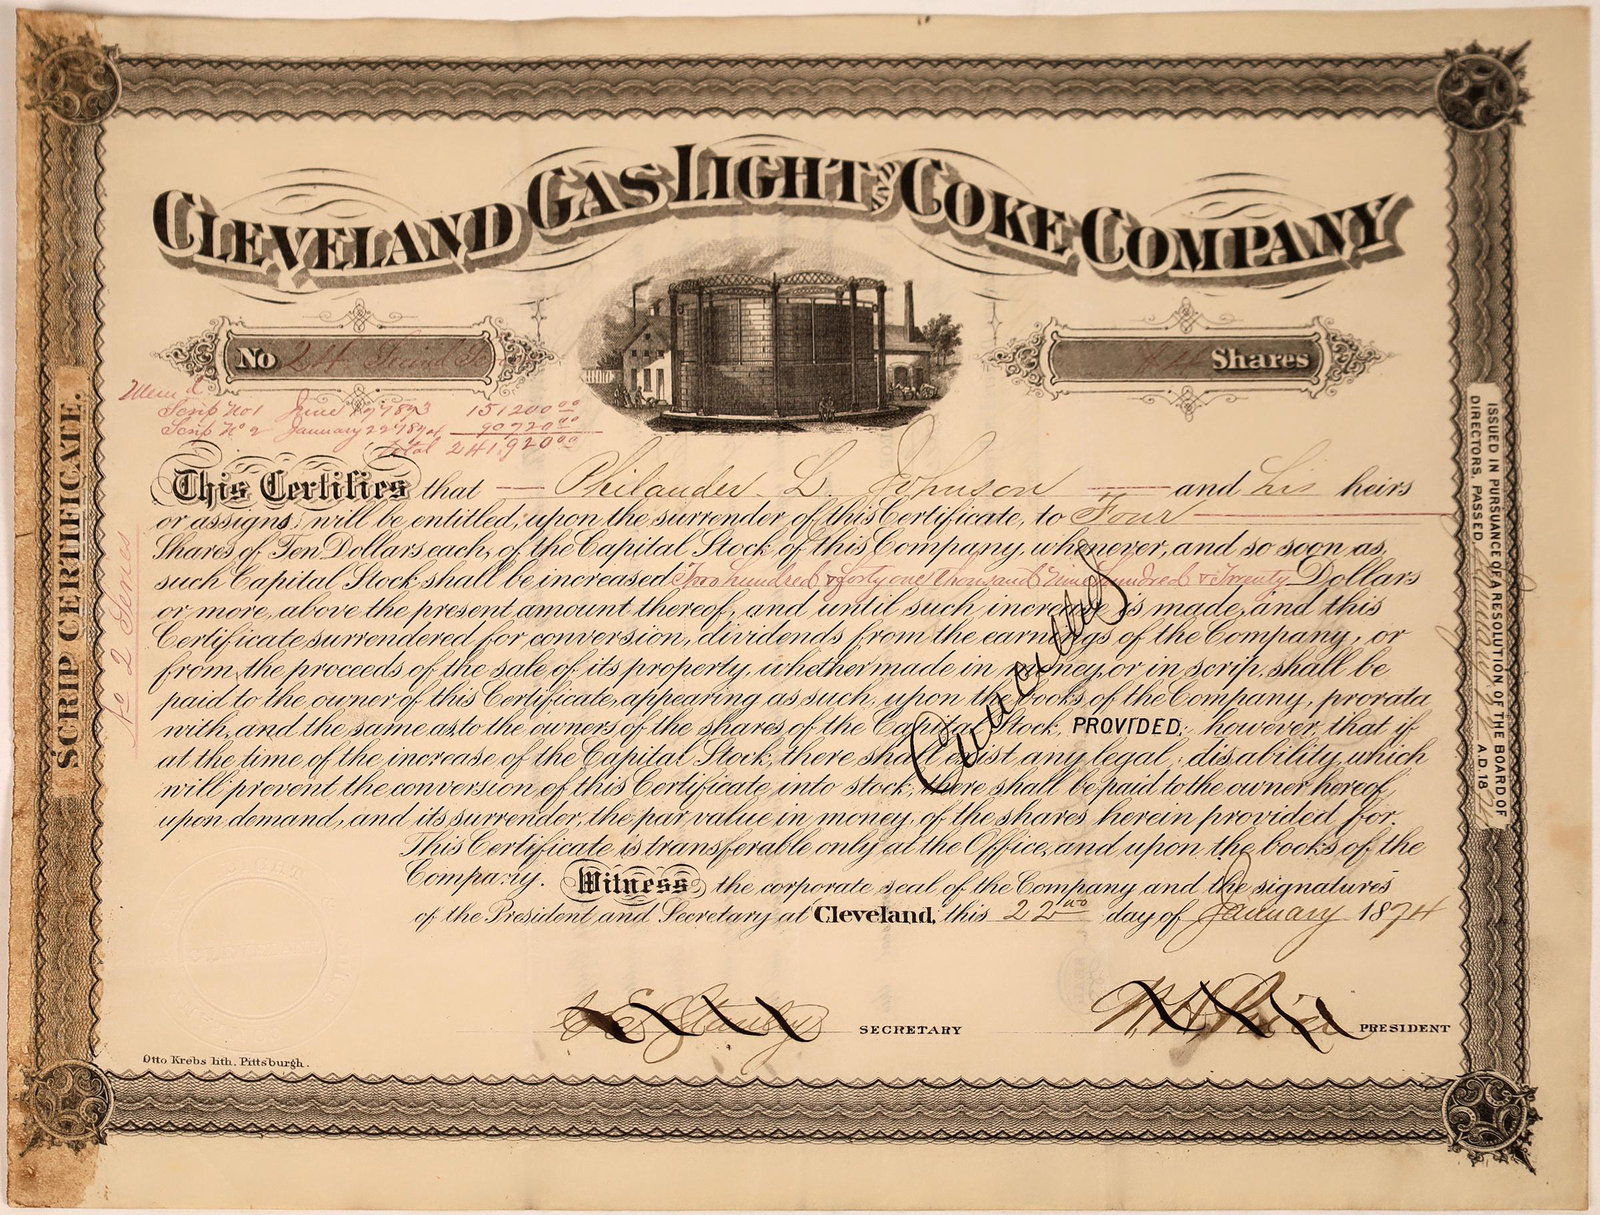 CLEVELAND GAS LIGHT AND COKE COMPANY
No 24
Shares
Scrip No 1 June 17 1873 151200.00
Scrip No 2 January 22 1874 90720.00
Total 241,920.00
This Certifies that Philander L. Johnson and his heirs
or assigns, will be entitled, upon the surrender of this Certificate, to Four
Shares of Ten Dollars each, of the Capital Stock of this Company, whenever, and so soon as,
such Capital Stock shall be increased Two hundred & forty one thousand Nine Hundred & Twenty Dollars
or more, above the present amount thereof, and until such increase is made, and this
Certificate surrendered for conversion, dividends from the earnings of the Company, or
from the proceeds of the sale of its property, whether made in money, or in scrip, shall be
paid to the owner of this Certificate, appearing as such, upon the books of the Company, prorata
with, and the same as, to the owners of the shares of the Capital Stock, PROVIDED, however, that if
at the time of the increase of the Capital Stock, there shall exist any legal disability, which
will prevent the conversion of this Certificate into stock, there shall be paid to the owner hereof,
upon demand, and its surrender, the par value in money, of the shares herein provided for.
This Certificate is transferable only at the Office, and upon the books of the
Company. Witness, the corporate seal of the Company and the signatures
of the President and Secretary at Cleveland, this 22nd day of January 1874
Cancelled
SECRETARY
PRESIDENT
Otto Krebs lith. Pittsburgh.
SCRIP CERTIFICATE.
No 2 Series
ISSUED IN PURSUANCE OF A RESOLUTION OF THE BOARD OF
DIRECTORS, PASSED A.D. 18